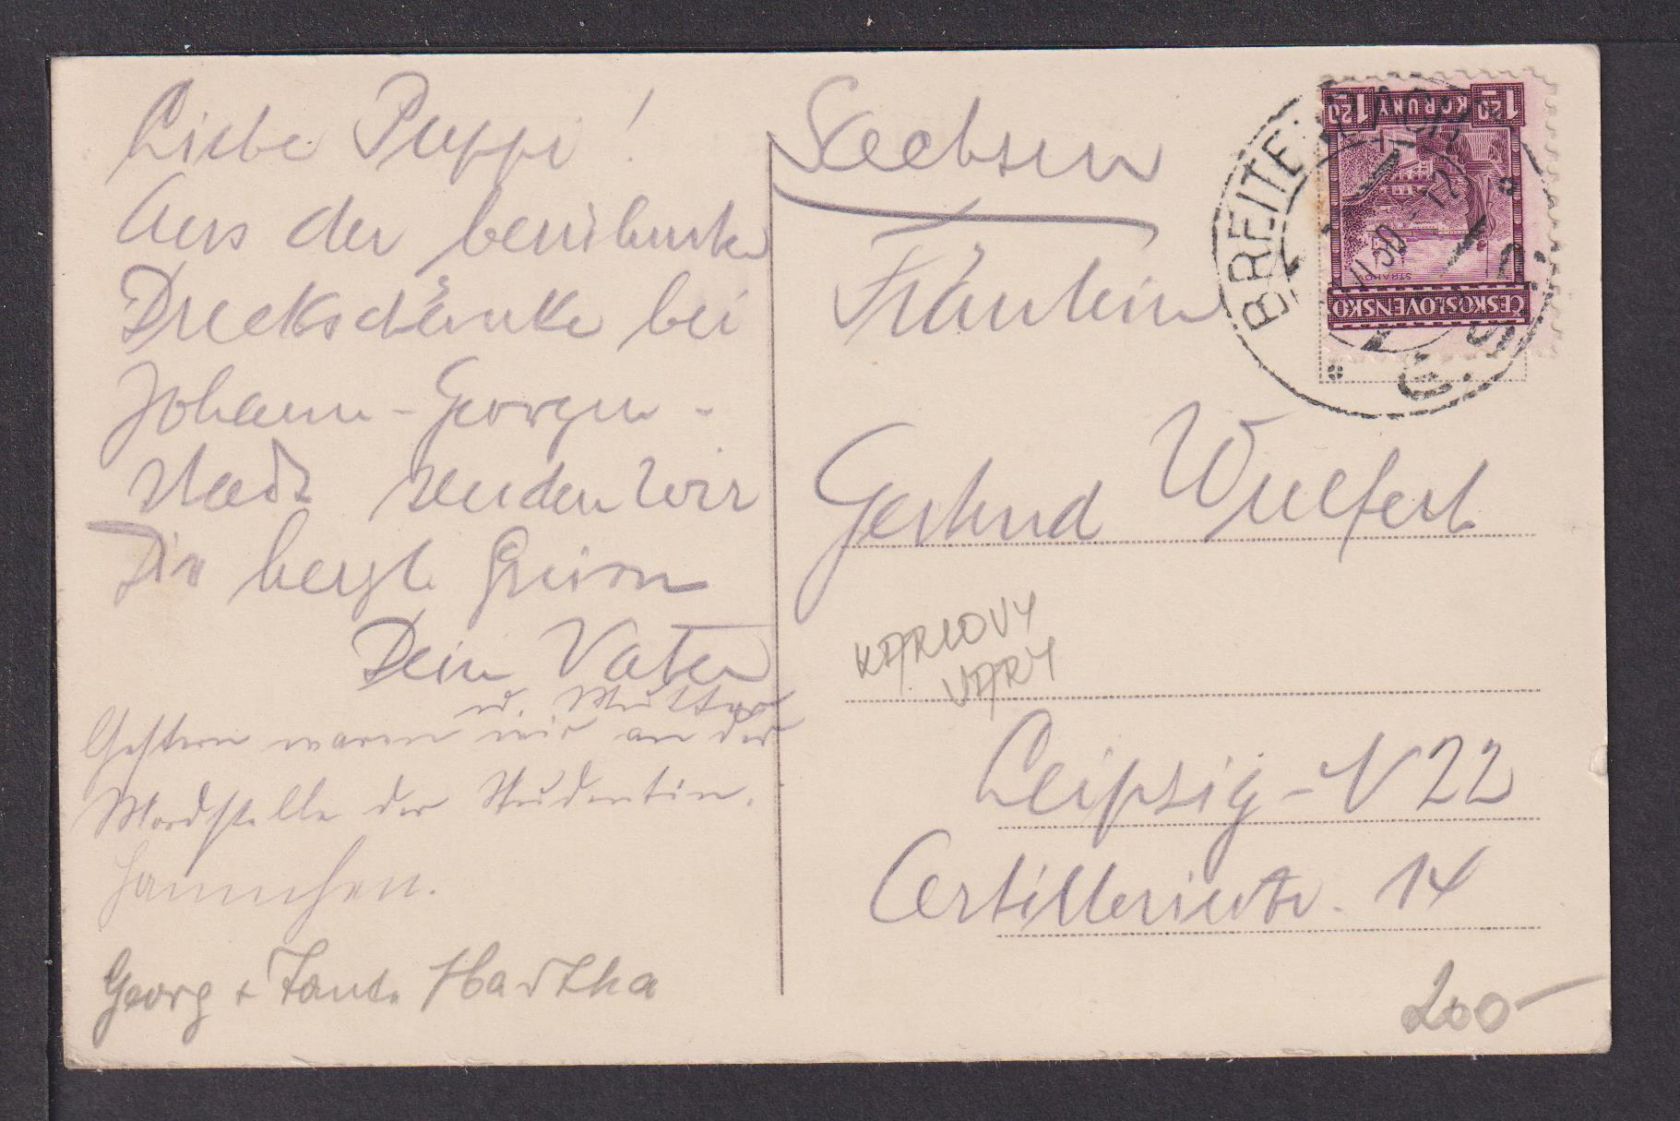 Liebe Puppi!
Aus der berühmten
Dreckschänke bei
Johann-Georgen-
stadt senden wir
Dir herzl. Grüsse
Dein Vater
u. Mutter
Gestern waren wir an der
Mordstelle der Studentin.
Hannchen.
Georg + Tante Martha
Sachsen
Fräulein
Gertrud Wulfert
KARLOVY
VARY
Leipzig-N 22
Artilleriestr. 14
200-
1 20 KORUNY 1 20
STRAHOV
ČESKOSLOVENSKO
BREITENBACH
Č.S.R.